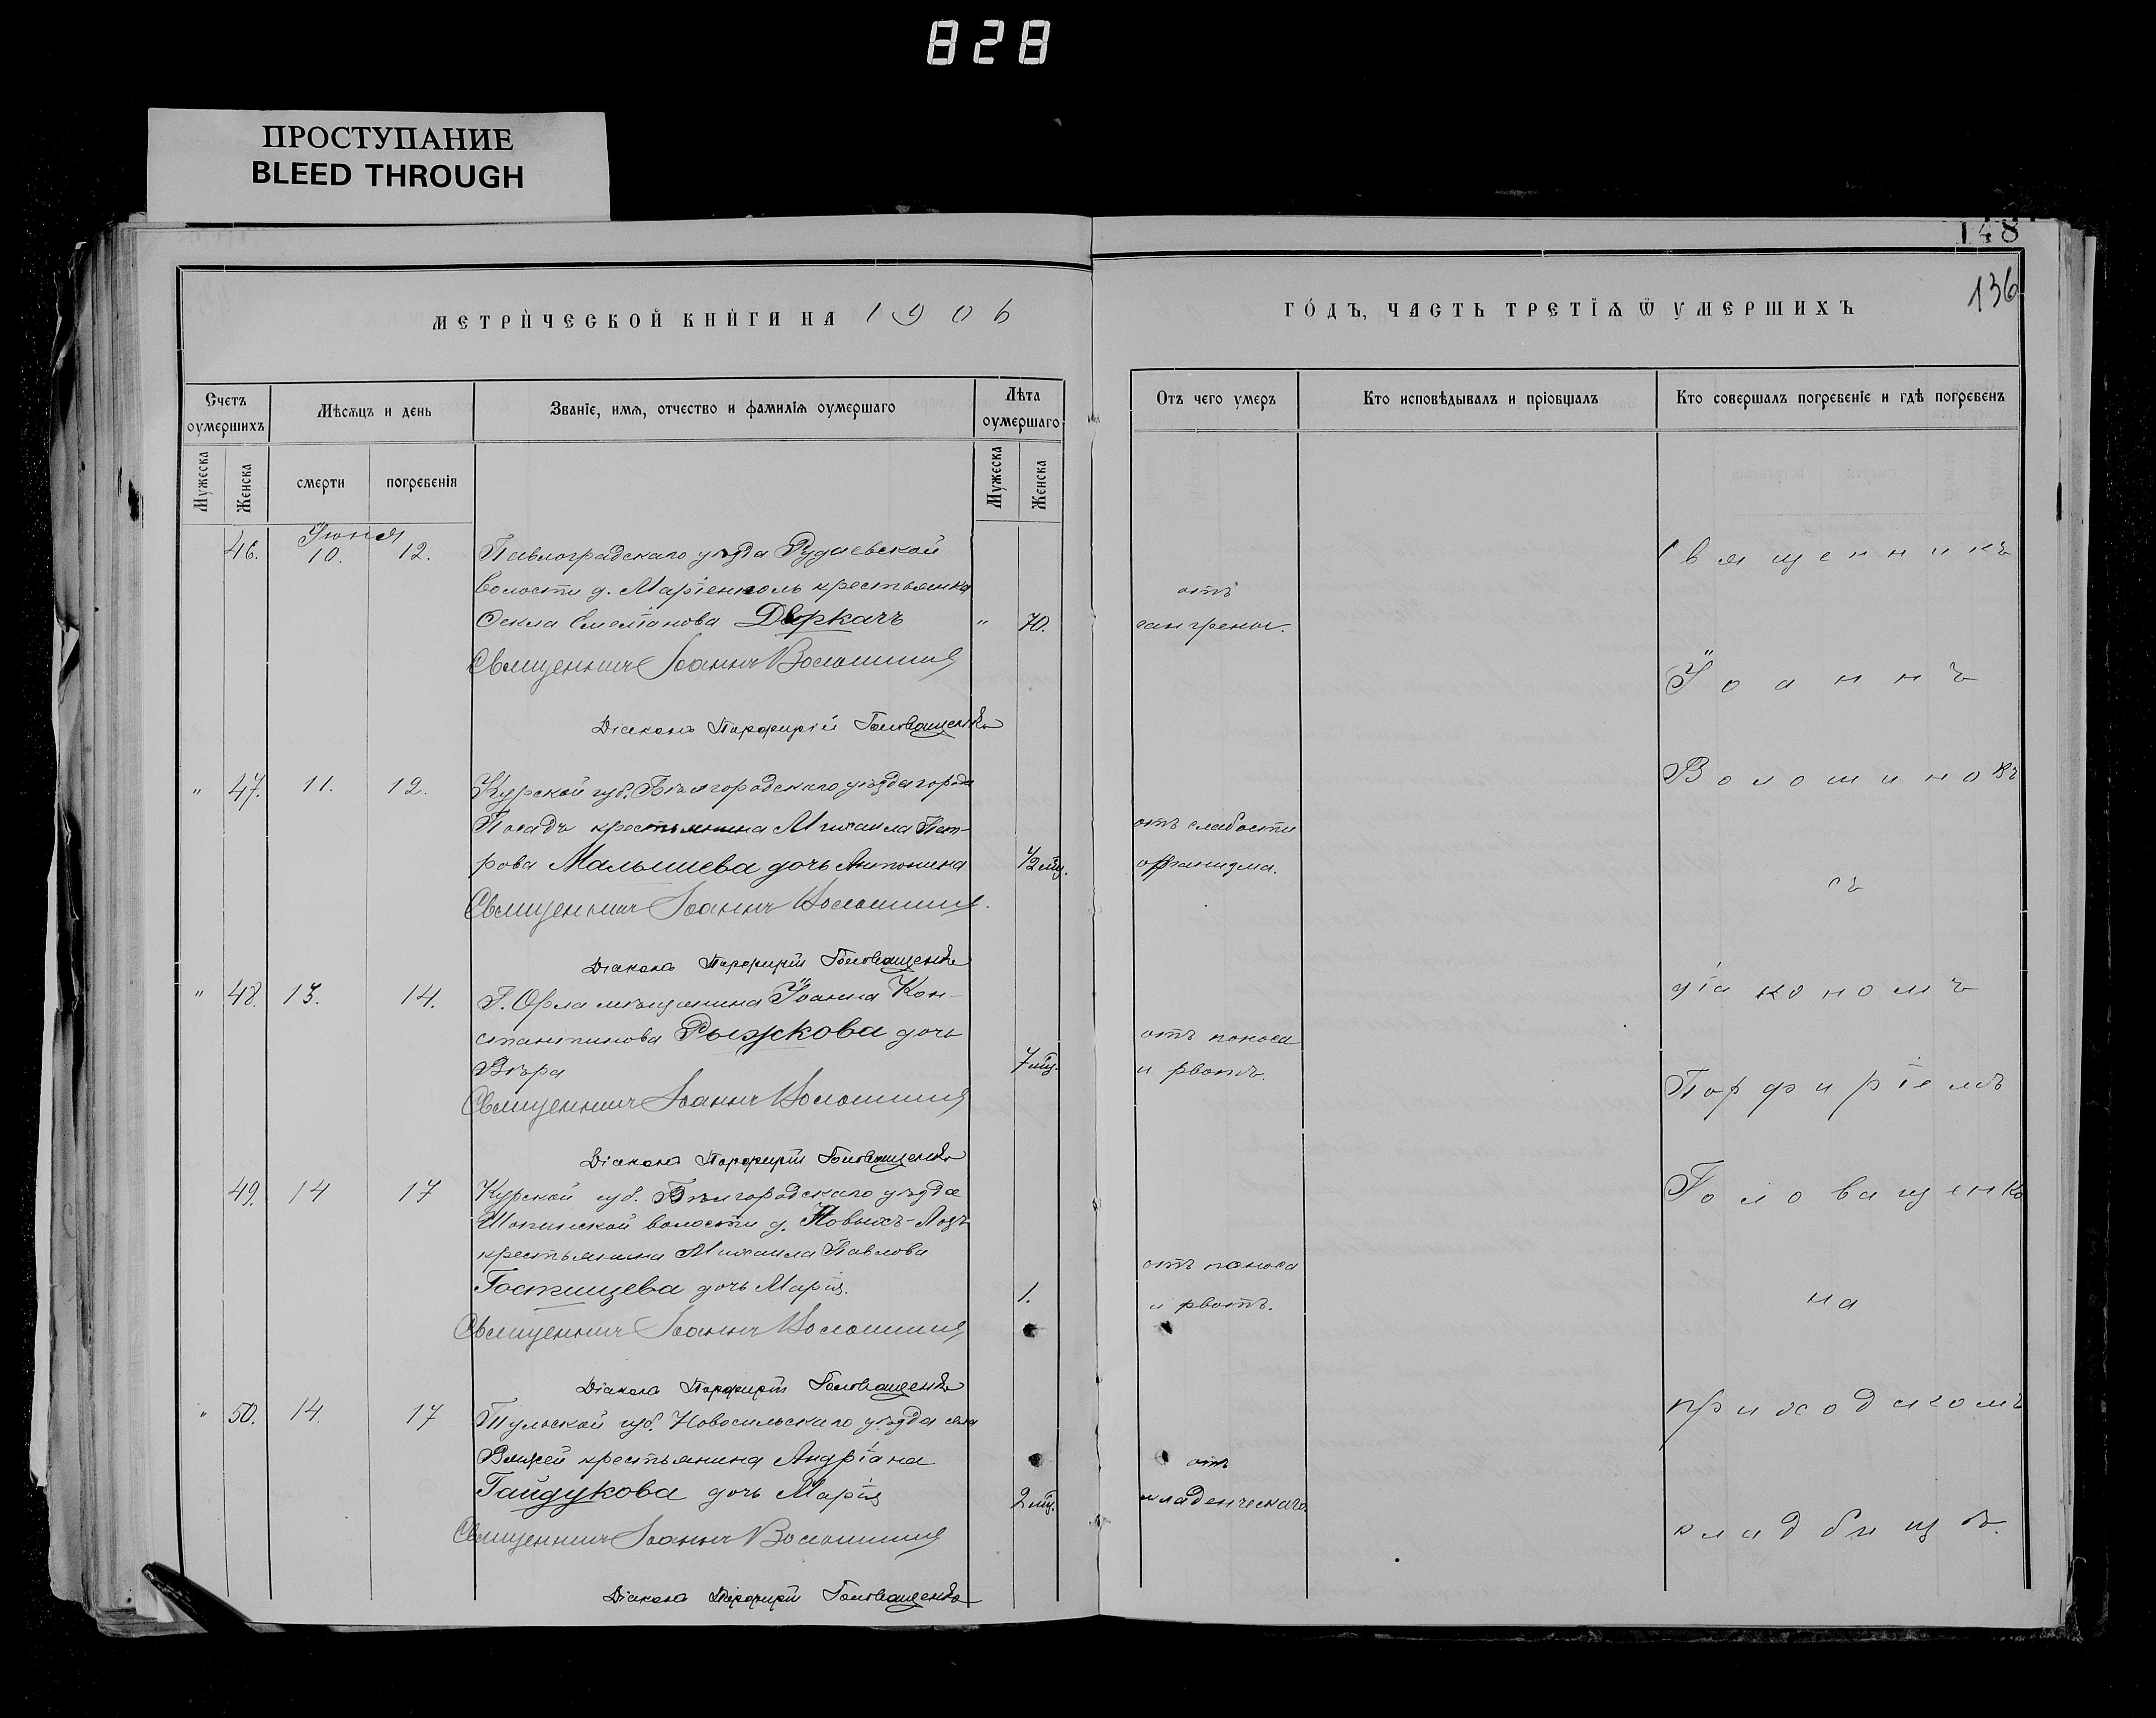 828
ПРОСТУПАНИЕ
BLEED THROUGH
148
136
МЕТРИЧЕСКОЙ КНИГИ НА 1906
ГОДЪ, ЧАСТЬ ТРЕТІЯ Ѿ УМЕРШИХЪ
Счетъ оумершихъ
Мѣсяцъ и день
Званіе, имя, отчество и фамилія оумершаго
Лѣта оумершаго
Отъ чего умеръ
Кто исповѣдывалъ и пріобщалъ
Кто совершалъ погребеніе и гдѣ погребенъ
Мужеска
Женска
смерти
погребенія
Мужеска
Женска
Іюня
46. 10. 12. Павлоградскаго уѣзда
волости д. Маріенполь крестьянка
Текла Стефанова Деркачъ " 70.
отъ
гангрены.
Священникъ Іоаннъ Волошиновъ
Діаконъ Порфирій Головащенко
" 47. 11. 12. Курской губ. Бѣлгородскаго уѣзда города
крестьянина Михаила Пет-
рова Малышева дочь Антонина 1/2 мц.
отъ слабости
организма.
Священникъ Іоаннъ Волошиновъ
Діаконъ Порфирій Головащенко
" 48. 13. 14. Г. Орла мѣщанина Іоанна Кон-
стантинова Рыжкова дочь
Вѣра 7 мц.
отъ поноса
и рвотъ.
Священникъ Іоаннъ Волошиновъ
Діаконъ Порфирій Головащенко
49. 14 17 Курской губ. Бѣлгородскаго уѣзда
Шопинской волости д. Новыхъ-Лозъ
крестьянина Михаила Павлова
Гостищева дочь Марія. 1.
отъ поноса
и рвотъ.
Священникъ Іоаннъ Волошиновъ
Діаконъ Порфирій Головащенко
" 50. 14. 17 Тульской губ. Новосильскаго уѣзда села
Вяжей крестьянина Андріана
Гайдукова дочь Марія 2 мц.
отъ
младенческаго
Священникъ Іоаннъ Волошиновъ
Діаконъ Порфирій Головащенко
Священникъ
Іоаннъ
Волошиновъ
съ
діакономъ
Порфиріемъ
Головащенко
на
приходскомъ
кладбищѣ.